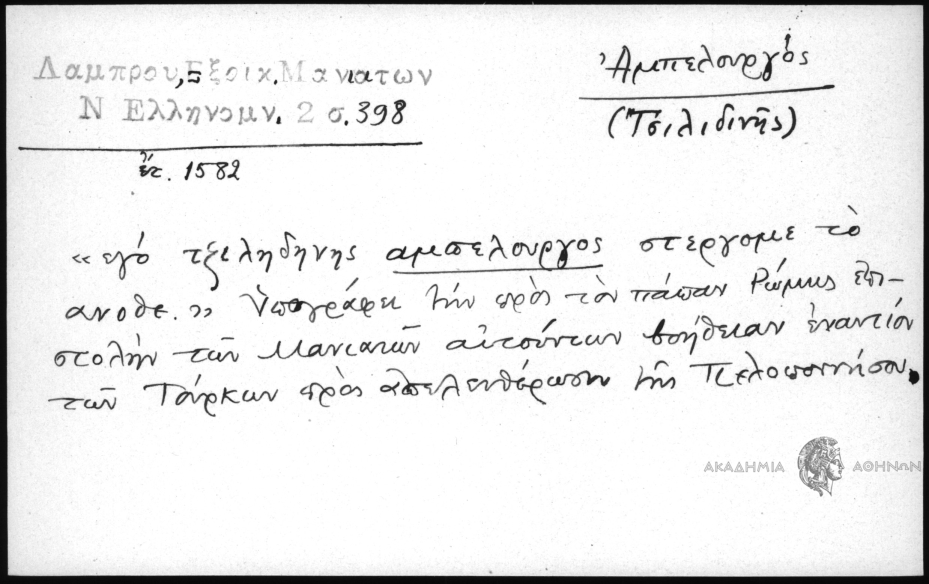 Λαμπρου, Εξοικ. Μανιατων
Ν Ελληνομν. 2 σ. 398
ἔτ. 1582
Ἀμπελουργός
(Τσιλιδινῆς)
«εγό τζεληδηνης αμπελουργος στεργομε τὸ
ανοθε.» Ὑπογράφει τὴν πρὸς τὸν πάπαν Ρώμης ἐπι-
στολὴν τῶν Μανιατῶν αἰτούντων βοήθειαν ἐναντίον
τῶν Τούρκων πρὸς ἀπελευθέρωσιν τῆς Πελοποννήσου.
ΑΚΑΔΗΜΙΑ ΑΘΗΝΩΝ